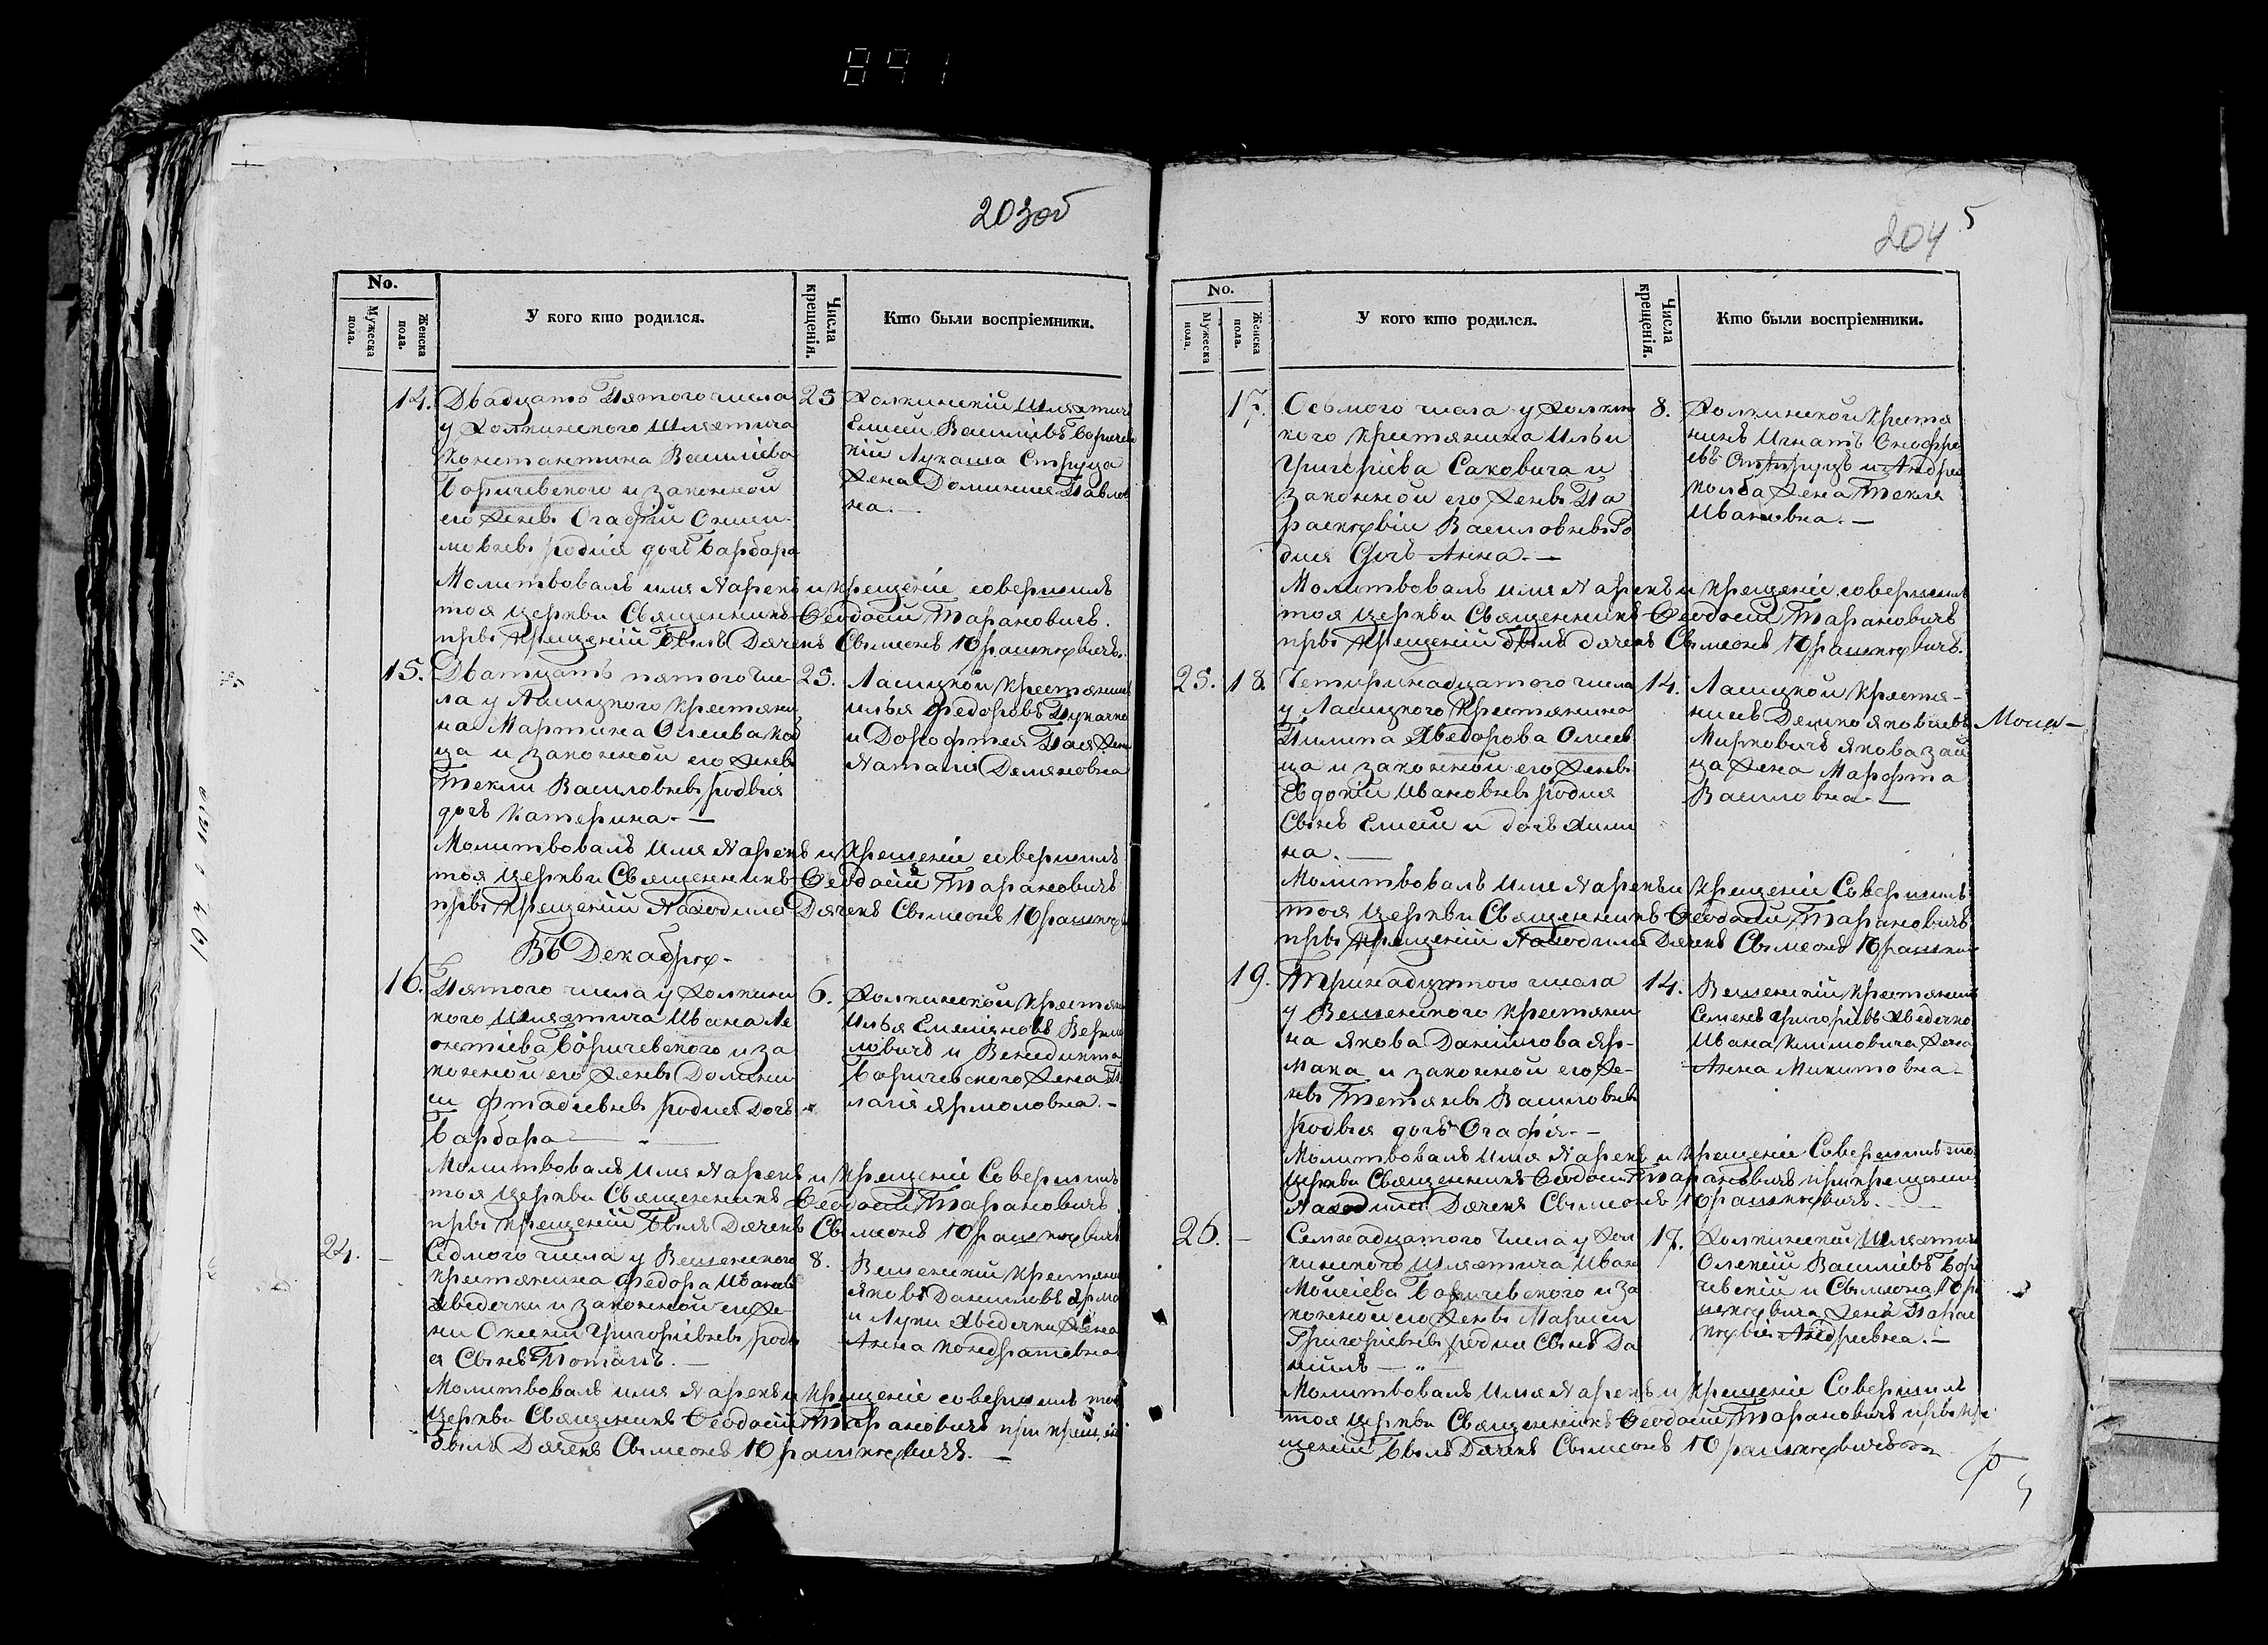 891
203об
No.
Мужеска пола.
Женска пола.
У кого кто родился.
Числа крещенія.
Кто были воспріемники.
14. Двадцать Пятого числа 25
у Колкинского Шляхтича
Константина Василіева
Боричевского и законной
его женѣ Огафіи
родися дочь Варвара
Колкинскій Шляхтичъ
Елисей Василіевъ Бориче
кій Лукаша
Жена Домникия Павлов
на.—
Молитвовалъ имя Нарекъ и крещеніе совершилъ
тоя церкви Священникъ Ѳеодосій Тарановичъ.
при крещеніи былъ Дячекъ Сѵмеонъ Юрашкевичъ.
15. Дватцать пятого чи- 25.
ла у Ласицкого крестяни
на Мартина
ца и законной его женѣ
Текли Василовнѣ родися
дочь Катерина.—
Ласицкой крестянинъ
Илья Федоровъ
и Дорофтея
Наталія Демяновна
Молитвовалъ имя Нарекъ и крещеніе совершилъ
тоя церкви Священникъ Ѳеодосій Тарановичъ
при крещеніи Находился Дячекъ Сѵмеонъ Юрашкеви
Въ Декабрѣ.
16. Пятого числа у Колкинс 6.
кого Шляхтича Ивана Ле
онтіева Боричевского и за
конной его женѣ Домники
и родися Дочь
Варвара
Колкинской крестяни
Илья
и Венедикта
Боричевского Жена
лагія Ярмоловна.—
Молитвовалъ имя Нарекъ и крещеніе Совершилъ
тоя церкви Священникъ Ѳеодосій Тарановичъ.
при крещеніи былъ Дячекъ Сѵмеонъ Юрашкевичъ
24. — Седмого числа у Вешенского 8.
крестянина Федора Иванова
Хведечки и законной его же-
ни Григоріевнѣ роди
ся Сынъ Потапъ.—
Вешенскій крестянин
Яковъ Даниловъ Ярма
и Луки Хведечки Жена
Анна Кондратовна
Молитвовалъ имя Нарекъ и крещеніе совершилъ тоя
церкви Священникъ Ѳеодосій Тарановичъ при крещеніи
былъ Дячекъ Сѵмеонъ Юрашкевичъ.—
204
5
No.
Мужеска пола.
Женска пола.
У кого кто родился.
Числа крещенія.
Кто были воспріемники.
17. Осьмого числа у Колкин 8.
кого крестянина Ильи
Григоріева Саковича и
законной его женѣ Па
раскевіи Василовнѣ Ро
дися Дочь Анна.—
Колкинской крестя
нинъ Игнатъ Онофрі
евъ и Андрея
жена Текля
Ивановна.—
Молитвовалъ имя Нарекъ и крещеніе совершилъ
тоя церкви Священникъ Ѳеодосій Тарановичъ
при крещеніи былъ дячекъ Сѵмеонъ Юрашкевичъ.
25. 18. Четиринадцатого числа 14.
у Ласицкого Крестянина
Пилипа Хведорова
ца и законной его женѣ
Евдокіи Ивановнѣ родися
Сынъ Елисей и дочь Акили
на.—
Ласицкой крестя-
нинъ Демко Яковлевъ
Мирковичъ Якова зай
ца жена Марфта
Василовна.—
Молитвовалъ имя Нарекъ и крещеніе Совершилъ
тоя церкви Священникъ Ѳеодосій Тарановичъ
при крещеніи Находился Дячекъ Сѵмеонъ Юрашкеви
19. Тринадцятого числа 14.
у Вешенского крестяни
на Якова Даніилова Яр-
мака и законной его же-
нѣ Тетянѣ Василовнѣ
родися дочь Огафія.—
Вешенскій крестянинъ
Семенъ Григоріевъ Хведечко
Ивана Климовича Жена
Анна Микитовна—
Молитвовалъ имя Нарекъ и крещеніе Совершилъ тоя
церкви Священникъ Ѳеодосій Тарановичъ при крещеніи
Находился Дячекъ Сѵмеонъ Юрашкевичъ.
26. — Семнадцатого числа у Кол 17.
кинского Шляхтича Ивана
Мойсіева Боричевского и за
конной его женѣ Марыси
Григоріевнѣ родися Сынъ Да
ніилъ
Колкинской Шляхтич
Олексій Василіевъ Бори
чевскій и Сѵмеона Юра
шкевича Жена Парас
кевія Андріевна.—
Молитвовалъ имя Нарекъ и крещеніе Совершилъ
тоя церкви Священникъ Ѳеодосій Тарановичъ при кре
щеніи былъ Дячекъ Сѵмеонъ Юрашкевичъ